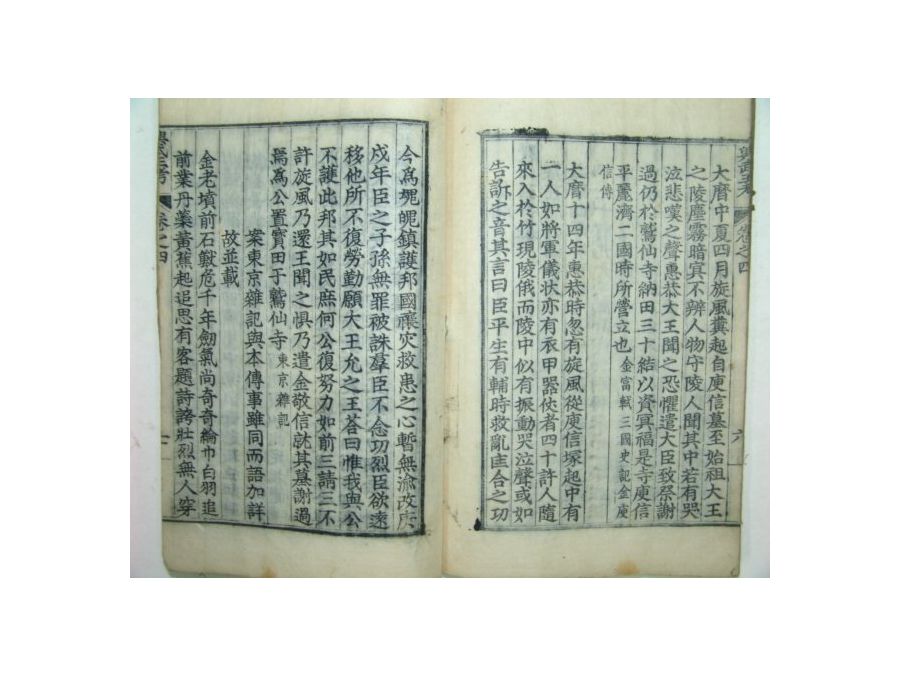 卷之四
六
大曆中夏四月旋風坌起自庾信墓至始祖大王
之陵塵霧暗冥不辨人物守陵人聞其中若有哭
泣悲嘆之聲惠恭大王聞之恐懼遣大臣致祭謝
過仍於鷲仙寺納田三十結以資冥福是寺庾信
平麗濟二國時所營立也 金富軾三國史記金庾
信傳
大曆十四年惠恭時忽有旋風從庾信塚起中有
一人如將軍儀狀亦有衣甲器仗者四十許人隨
來入於竹現陵俄而陵中似有振動哭泣聲或如
告訴之音其言曰臣平生有輔時救亂匡合之功
今爲魂魄鎮護邦國禳灾救患之心暫無渝改庚
戌年臣之子孫無罪被誅羣臣不念功烈臣欲遠
移他所不復勞勤願大王允之王荅曰惟我與公
不護此邦其如民庶何公復努力如前三請三不
許旋風乃還王聞之惧乃遣金敬信就其墓謝過
焉爲公置寶田于鷲仙寺 東京雜記
案東京雜記與本傳事雖同而語加詳
故並載
金老墳前石獸危千年劒氣尚奇奇綸巾白羽追
前業丹藥黃蕉起追思有客題詩誇壯烈無人穿
卷之四